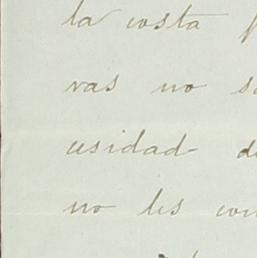 la costa p
vas no s
cesidad d
no les con